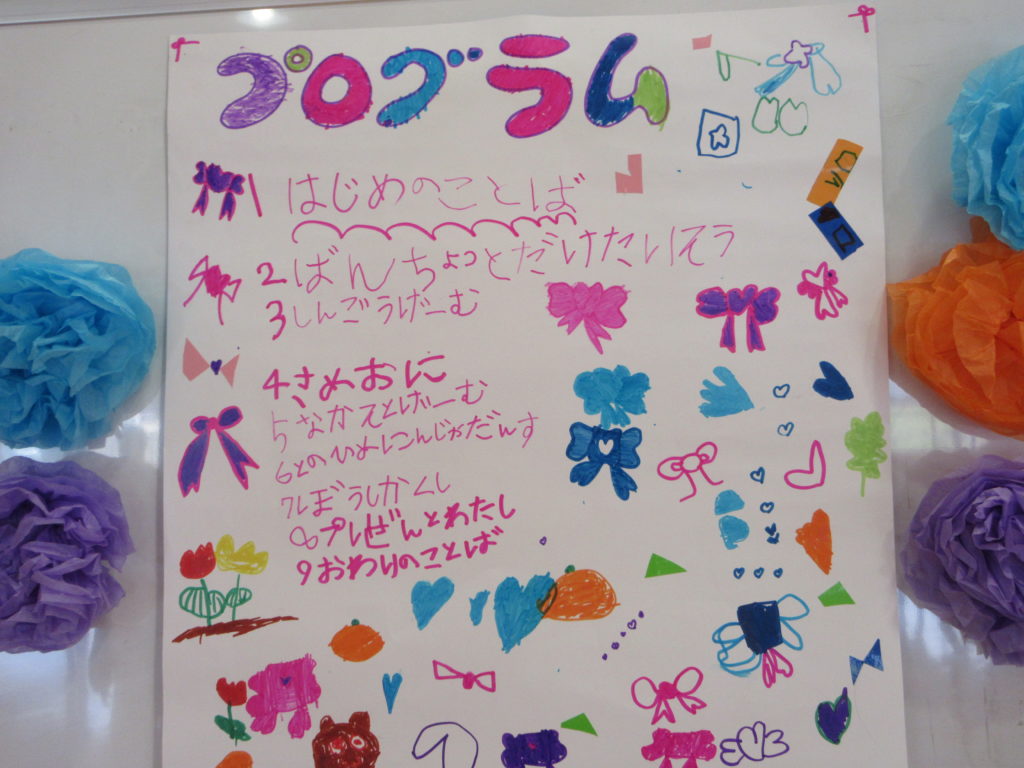 プログラム
1 はじめのことば
2 ばんちょっとだけたいそう
3 しんごうげーむ
4、さめおに
5 なかえとげーむ
6 とのひめにんじゃだんす
7 ぼうしかくし
8 プレぜんとわたし
9 おわりのことば